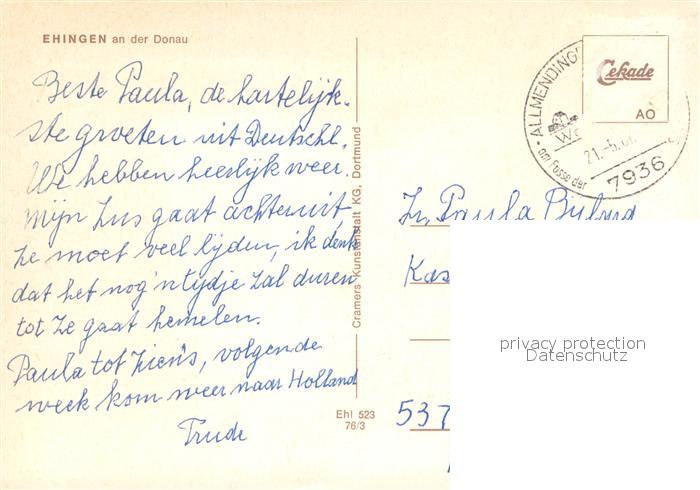 EHINGEN an der Donau
Beste Paula, de hartelijk-
ste groeten uit Deutschl.
We hebben heerlijk weer.
Mijn zus gaat achteruit,
ze moet veel lijden, ik denk
dat het nog 'n tijdje zal duren
tot ze gaat hemelen.
Paula tot ziens, volgende
week kom weer naar Holland
Trude
Cramers Kunstanstalt KG, Dortmund
Ehl 523
76/3
Cekade
AO
ALLMENDING
am Fusse der
21.-5.
7936
Paula
Kas
537
privacy protection
Datenschutz